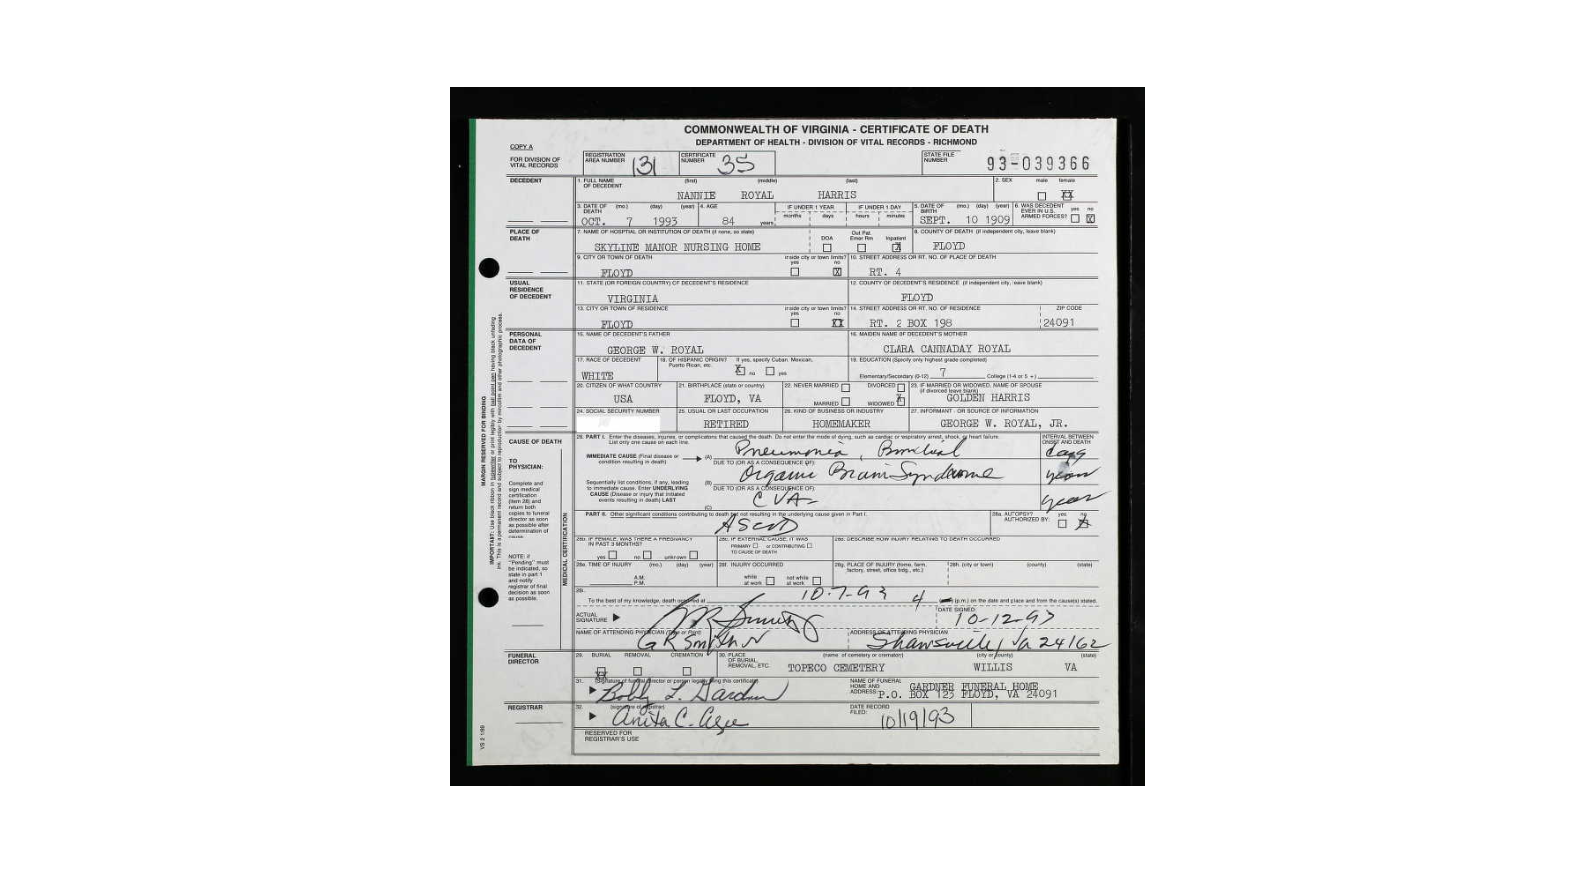 COMMONWEALTH OF VIRGINIA - CERTIFICATE OF DEATH
DEPARTMENT OF HEALTH - DIVISION OF VITAL RECORDS - RICHMOND
COPY A
FOR DIVISION OF VITAL RECORDS
REGISTRATION AREA NUMBER 131 CERTIFICATE NUMBER 35 STATE FILE NUMBER 93-039366
DECEDENT
1. FULL NAME OF DECEDENT (first) (middle) (last) 2. SEX male female
NANNIE ROYAL HARRIS XX
3. DATE OF DEATH (mo.) (day) (year) 4. AGE IF UNDER 1 YEAR IF UNDER 1 DAY 5. DATE OF BIRTH (mo.) (day) (year) 6. WAS DECEDENT EVER IN U.S. ARMED FORCES? yes no
months days hours minutes
OCT. 7 1993 84 years SEPT. 10 1909 X
PLACE OF DEATH
7. NAME OF HOSPITAL OR INSTITUTION OF DEATH (if none, so state) DOA Out Pat. Emer Rm Inpatient 8. COUNTY OF DEATH (if independent city, leave blank)
SKYLINE MANOR NURSING HOME X FLOYD
9. CITY OR TOWN OF DEATH inside city or town limits? yes no 10. STREET ADDRESS OR RT. NO. OF PLACE OF DEATH
FLOYD X RT. 4
USUAL RESIDENCE OF DECEDENT
11. STATE (OR FOREIGN COUNTRY) OF DECEDENT'S RESIDENCE 12. COUNTY OF DECEDENT'S RESIDENCE (if independent city, leave blank)
VIRGINIA FLOYD
13. CITY OR TOWN OF RESIDENCE inside city or town limits? yes no 14. STREET ADDRESS OR RT. NO. OF RESIDENCE ZIP CODE
FLOYD XX RT. 2 BOX 198 24091
PERSONAL DATA OF DECEDENT
15. NAME OF DECEDENT'S FATHER 16. MAIDEN NAME OF DECEDENT'S MOTHER
GEORGE W. ROYAL CLARA CANNADAY ROYAL
17. RACE OF DECEDENT 18. OF HISPANIC ORIGIN? If yes, specify Cuban, Mexican, Puerto Rican, etc. 19. EDUCATION (Specify only highest grade completed)
WHITE X no yes Elementary/Secondary (0-12) 7 College (1-4 or 5 +)
20. CITIZEN OF WHAT COUNTRY 21. BIRTHPLACE (state or country) 22. NEVER MARRIED DIVORCED 23. IF MARRIED OR WIDOWED, NAME OF SPOUSE (if divorced leave blank)
USA FLOYD, VA MARRIED WIDOWED X GOLDEN HARRIS
24. SOCIAL SECURITY NUMBER 25. USUAL OR LAST OCCUPATION 26. KIND OF BUSINESS OR INDUSTRY 27. INFORMANT - OR SOURCE OF INFORMATION
RETIRED HOMEMAKER GEORGE W. ROYAL, JR.
CAUSE OF DEATH
28. PART I. Enter the diseases, injuries, or complications that caused the death. Do not enter the mode of dying, such as cardiac or respiratory arrest, shock, or heart failure. List only one cause on each line. INTERVAL BETWEEN ONSET AND DEATH
IMMEDIATE CAUSE (Final disease or condition resulting in death) (A) Pneumonia, Bronchial days
DUE TO (OR AS A CONSEQUENCE OF):
(B) Organic Brain Syndrome years
Sequentially list conditions, if any, leading to immediate cause. Enter UNDERLYING CAUSE (Disease or injury that initiated events resulting in death) LAST
DUE TO (OR AS A CONSEQUENCE OF):
(C) CVA years
PART II. Other significant conditions contributing to death but not resulting in the underlying cause given in Part I. 28a. AUTOPSY? AUTHORIZED BY: yes no
ASCVD X
TO PHYSICIAN:
Complete and sign medical certification (item 28) and return both copies to funeral director as soon as possible after determination of cause.
NOTE: if "Pending" must be indicated, so state in part 1 and notify registrar of final decision as soon as possible.
MEDICAL CERTIFICATION
28b. IF FEMALE, WAS THERE A PREGNANCY IN PAST 3 MONTHS? yes no unknown
28c. IF EXTERNAL CAUSE, IT WAS PRIMARY or CONTRIBUTING TO CAUSE OF DEATH
28d. DESCRIBE HOW INJURY RELATING TO DEATH OCCURRED
28e. TIME OF INJURY (mo.) (day) (year) A.M. P.M. 28f. INJURY OCCURRED while at work not while at work 28g. PLACE OF INJURY (home, farm, factory, street, office bldg., etc.) 28h. (city or town) (county) (state)
To the best of my knowledge, death occurred at 10-7-93 4 (p.m.) on the date and place and from the cause(s) stated.
ACTUAL SIGNATURE GR Smith DATE SIGNED: 10-12-93
NAME OF ATTENDING PHYSICIAN (Type or Print) ADDRESS OF ATTENDING PHYSICIAN
G R Smith Shawsville, Va 24162
FUNERAL DIRECTOR
29. BURIAL REMOVAL CREMATION 30. PLACE OF BURIAL, REMOVAL, ETC. (name of cemetery or crematory) (city or county) (state)
XX TOPECO CEMETERY WILLIS VA
31. (signature of funeral director or person legally filing this certificate) NAME OF FUNERAL HOME AND ADDRESS:
Bobby L. Gardner GARDNER FUNERAL HOME
P.O. BOX 123 FLOYD, VA 24091
REGISTRAR
32. (signature of registrar) DATE RECORD FILED:
Anita C. Agee 10/19/93
RESERVED FOR REGISTRAR'S USE
MARGIN RESERVED FOR BINDING
VS 2 1/89